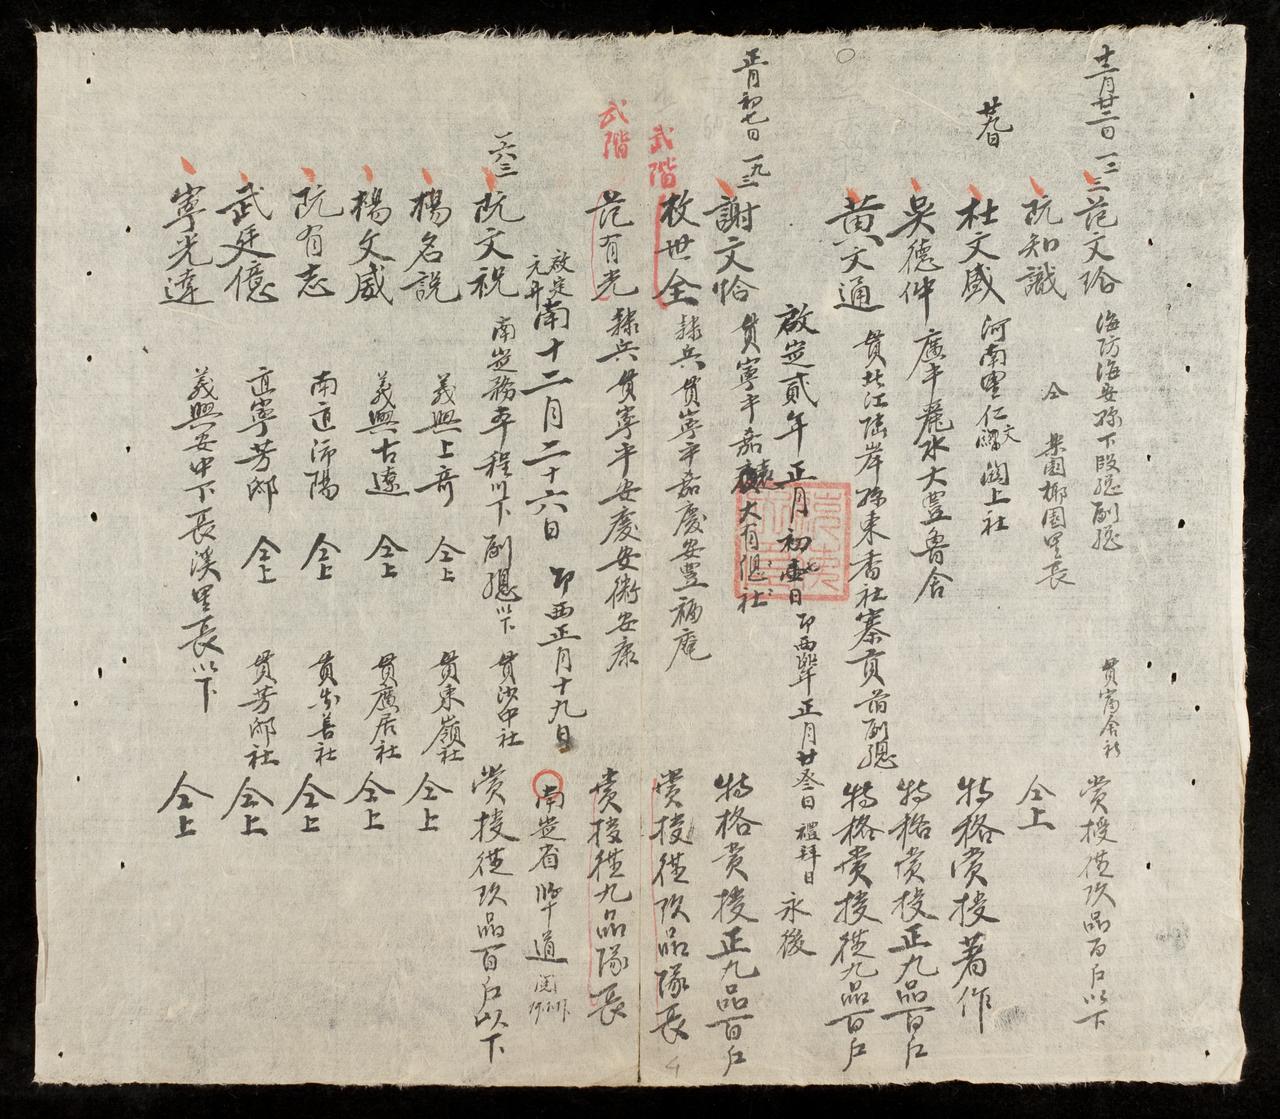 十二月廿二日
范文珨 海防海安縣下段總副總 貫富舍社 赏授從玖品百户以下
阮知識 仝 樂園椰園里長 仝上
廿九日
杜文盛 河南里仁文澗上社 特格赏授著作
吳德仲 廣平麗水大豊魯舍 特格赏授正九品百户
黄文通 貫北江陸岸縣東香社寨貢首副總 特格赏授從九品百户
啟定貳年正月初 日 正月廿叁日禮拜日 永後
正月初七日
謝文恰 貫寧平嘉遠大有總社 特格赏授正九品百户
武階
枚世全 隸兵貫寧平嘉慶安豊福庵 赏授從玖品隊長
武階
范有光 隸兵貫寧平安慶安衛安康 赏授從九品隊長
啟定元年 南十二月二十六日 卯西正月十九日 南定省 道
阮文祝 南定務本程川下副總以下 貫沙中社 赏授從玖品百户以下
楊名説 義興上奇 仝上 貫東嶺社 仝上
楊文威 義興古遼 仝上 貫廣居社 仝上
阮有志 南直沛陽 仝上 貫 善社 仝上
武廷億 直寧芳郈 仝上 貫芳郈社 仝上
寧光達 義興安中下長溪里長以下 仝上